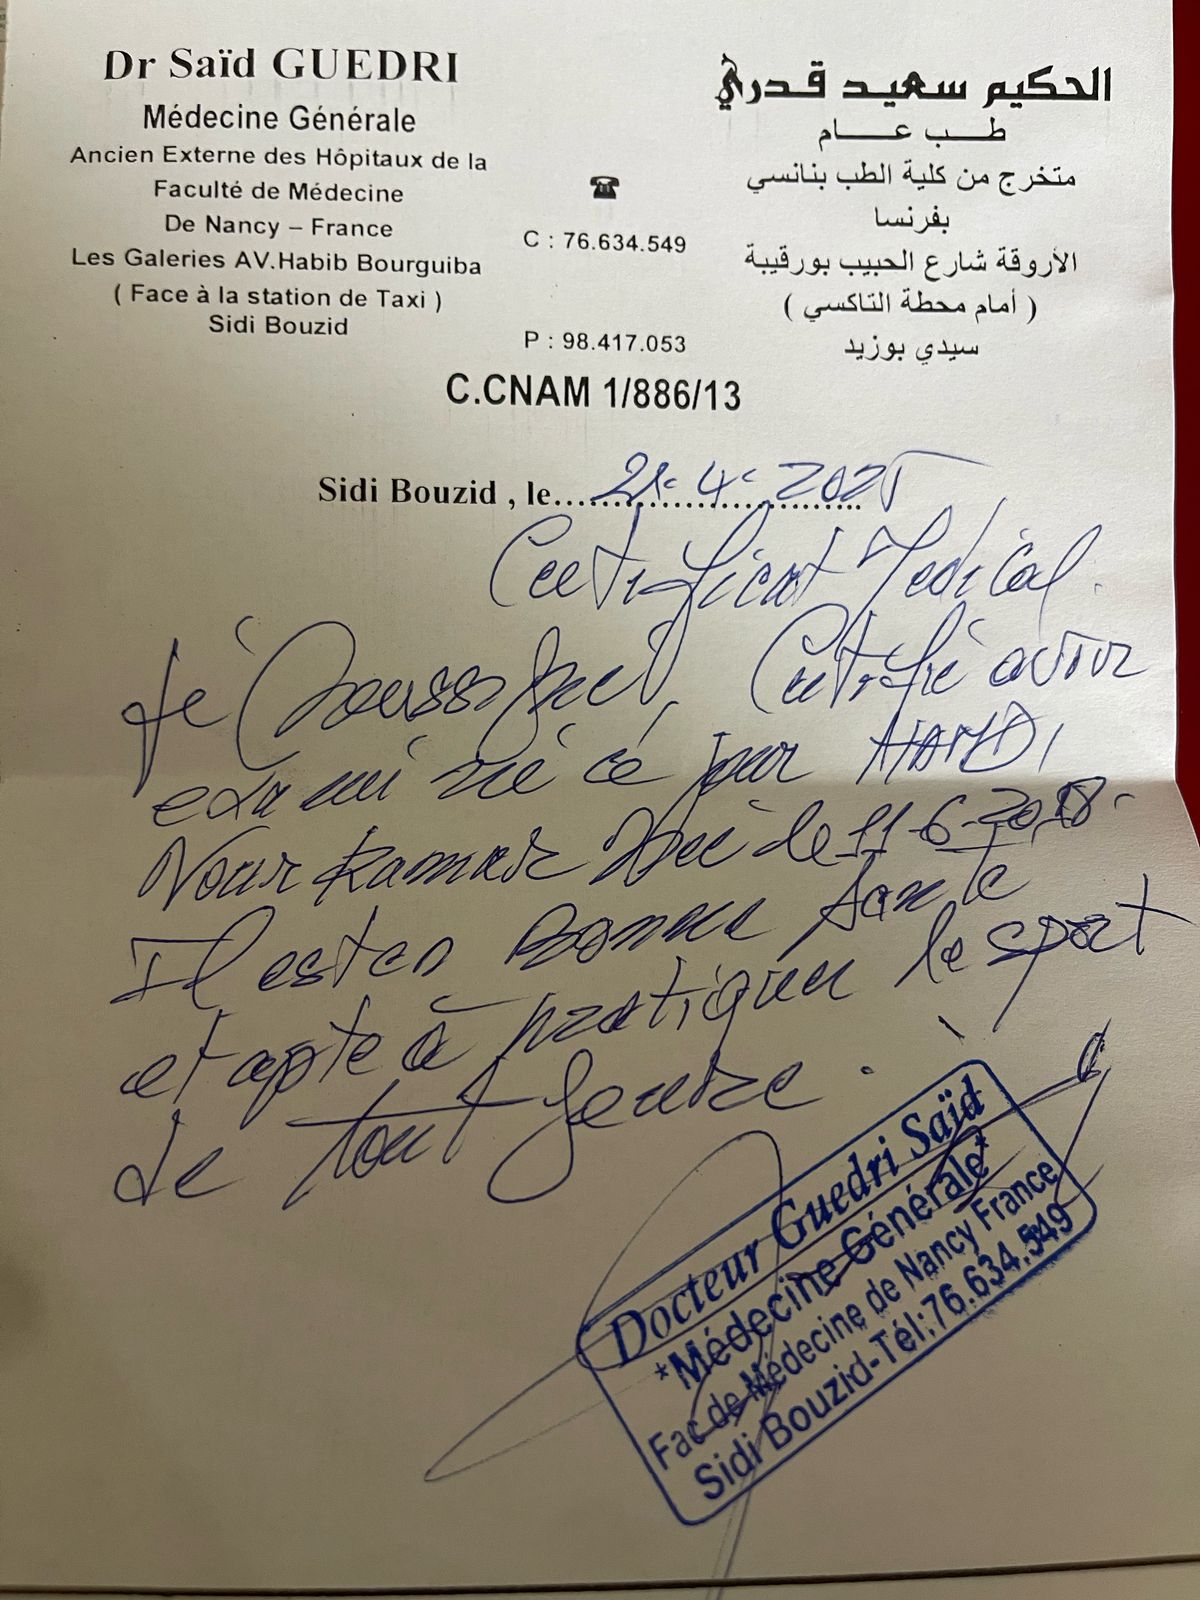 Dr Saïd GUEDRI
Médecine Générale
Ancien Externe des Hôpitaux de la
Faculté de Médecine
De Nancy – France
Les Galeries AV.Habib Bourguiba
( Face à la station de Taxi )
Sidi Bouzid
☎
C : 76.634.549
P : 98.417.053
الحكيم سعيد قدري
طب عام
متخرج من كلية الطب بنانسي
بفرنسا
الأروقة شارع الحبيب بورقيبة
( أمام محطة التاكسي )
سيدي بوزيد
C.CNAM 1/886/13
Sidi Bouzid , le 21.4.2025
Certificat Medical.
Je Soussigné Certifie avoir
examiné ce jour HAMDI
Nour née le 11-6-2018.
Il est en Bonne Santé
et apte à pratiquer le sport
de tout Genre.
Docteur Guedri Saïd
*Médecine Générale*
Fac de Médecine de Nancy France
Sidi Bouzid-Tél:76.634.549